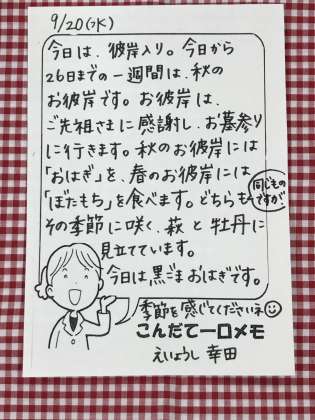 9/20(水)
今日は、彼岸入り。今日から
26日までの一週間は、秋の
お彼岸です。お彼岸は、
ご先祖さまに感謝し、お墓参り
に行きます。秋のお彼岸には
「おはぎ」を、春のお彼岸には
「ぼたもち」を食べます。どちらも
同じもの
ですが、
その季節に咲く、萩と牡丹に
見立てています。
今日は、黒ごまおはぎです。
季節を感じてくださいネ
こんだて一口メモ
えいようし 幸田